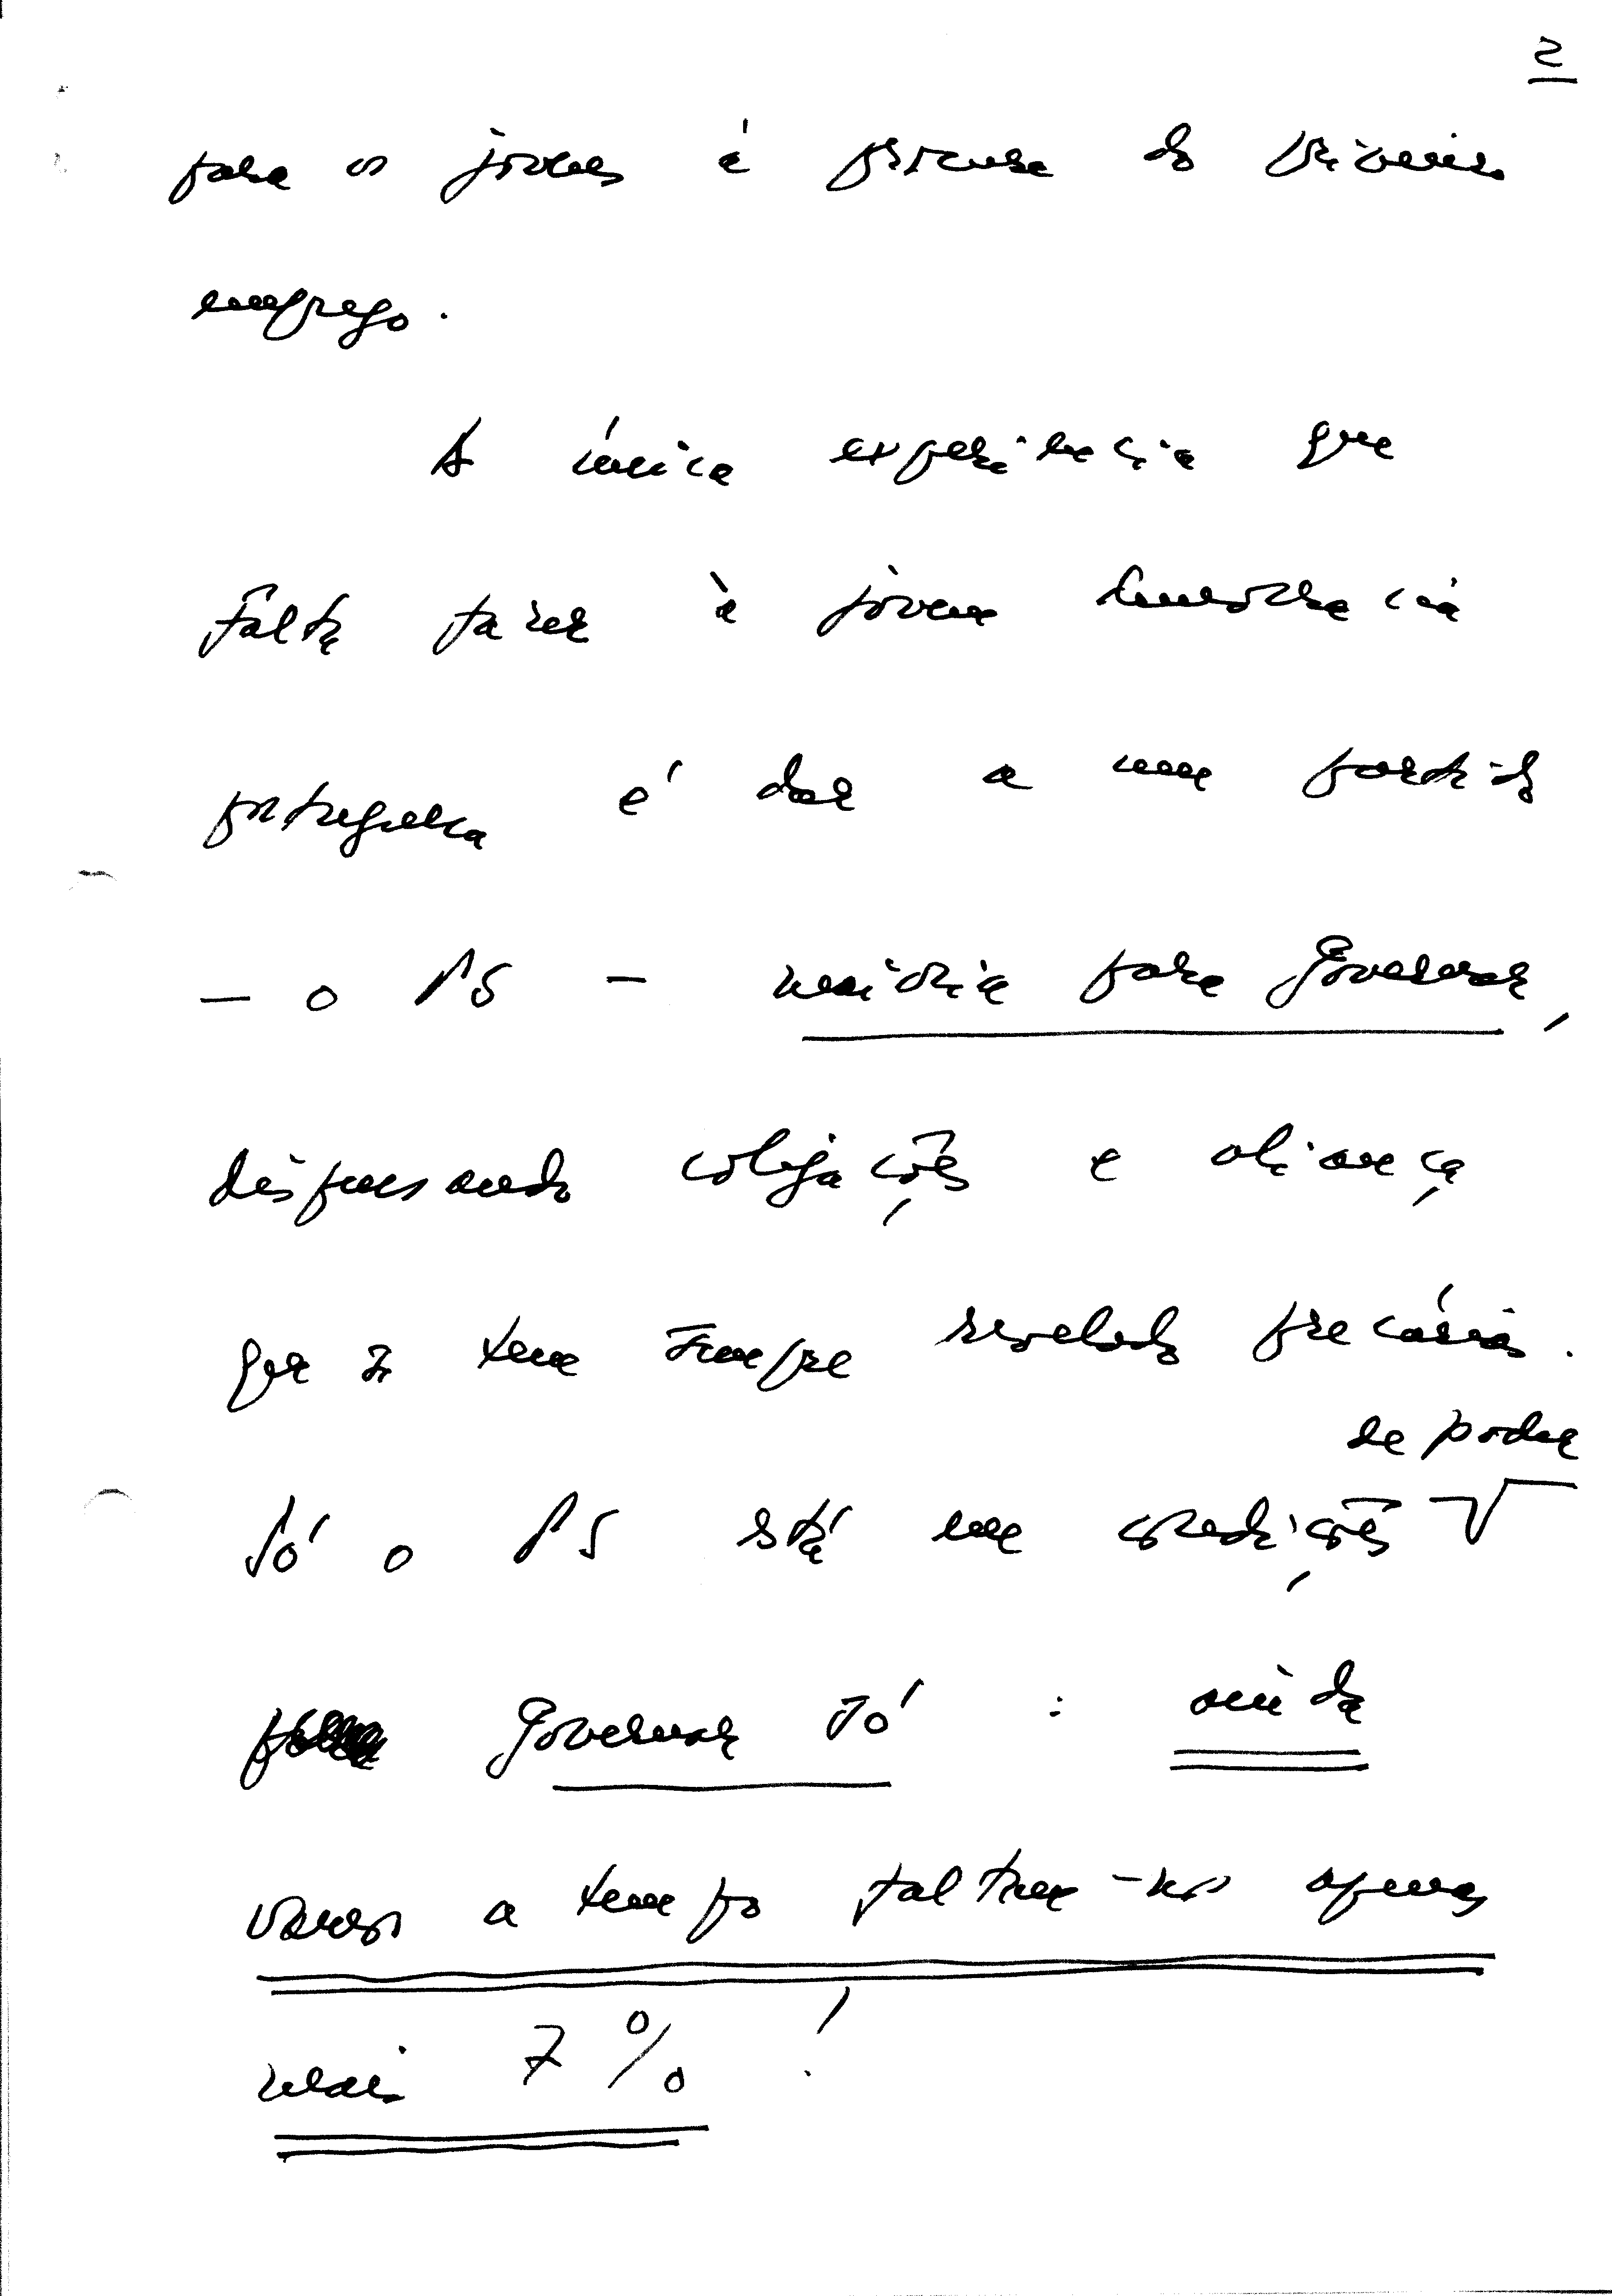 2
para os jovens à procura do primeiro
emprego.
A única experiência que
falta fazer à jovem democracia
portuguesa é dar a um partido
— o PS — maioria para governar,
dispensando coligações e aliança
que se tem sempre revelado precárias.
de poder
Só o PS está em condições √
governar só : ainda
vamos a tempo faltam-nos apenas
mais 7% !